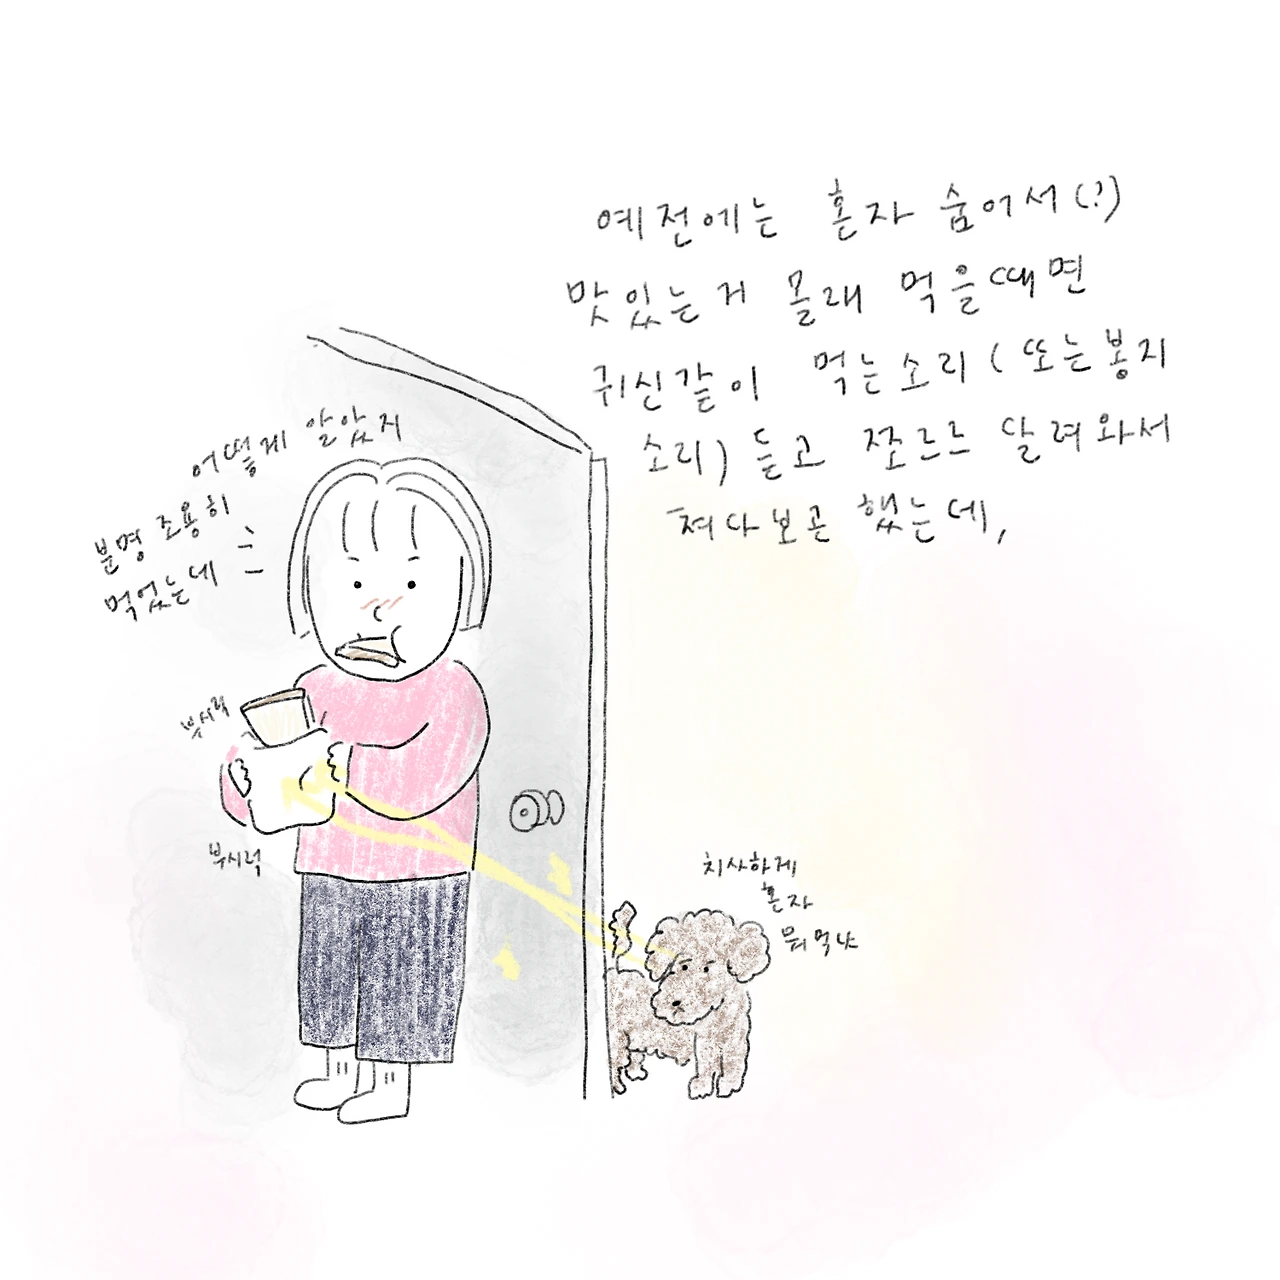 예전에는 혼자 숨어서(?)
맛있는거 몰래 먹을때면
귀신같이 먹는소리 (또는봉지
소리) 듣고 쪼르르 달려와서
쳐다보곤 했는데,
어떻게 알았지
분명 조용히
먹었는데
부시럭
부시럭
치사하게
혼자
뭐먹냐